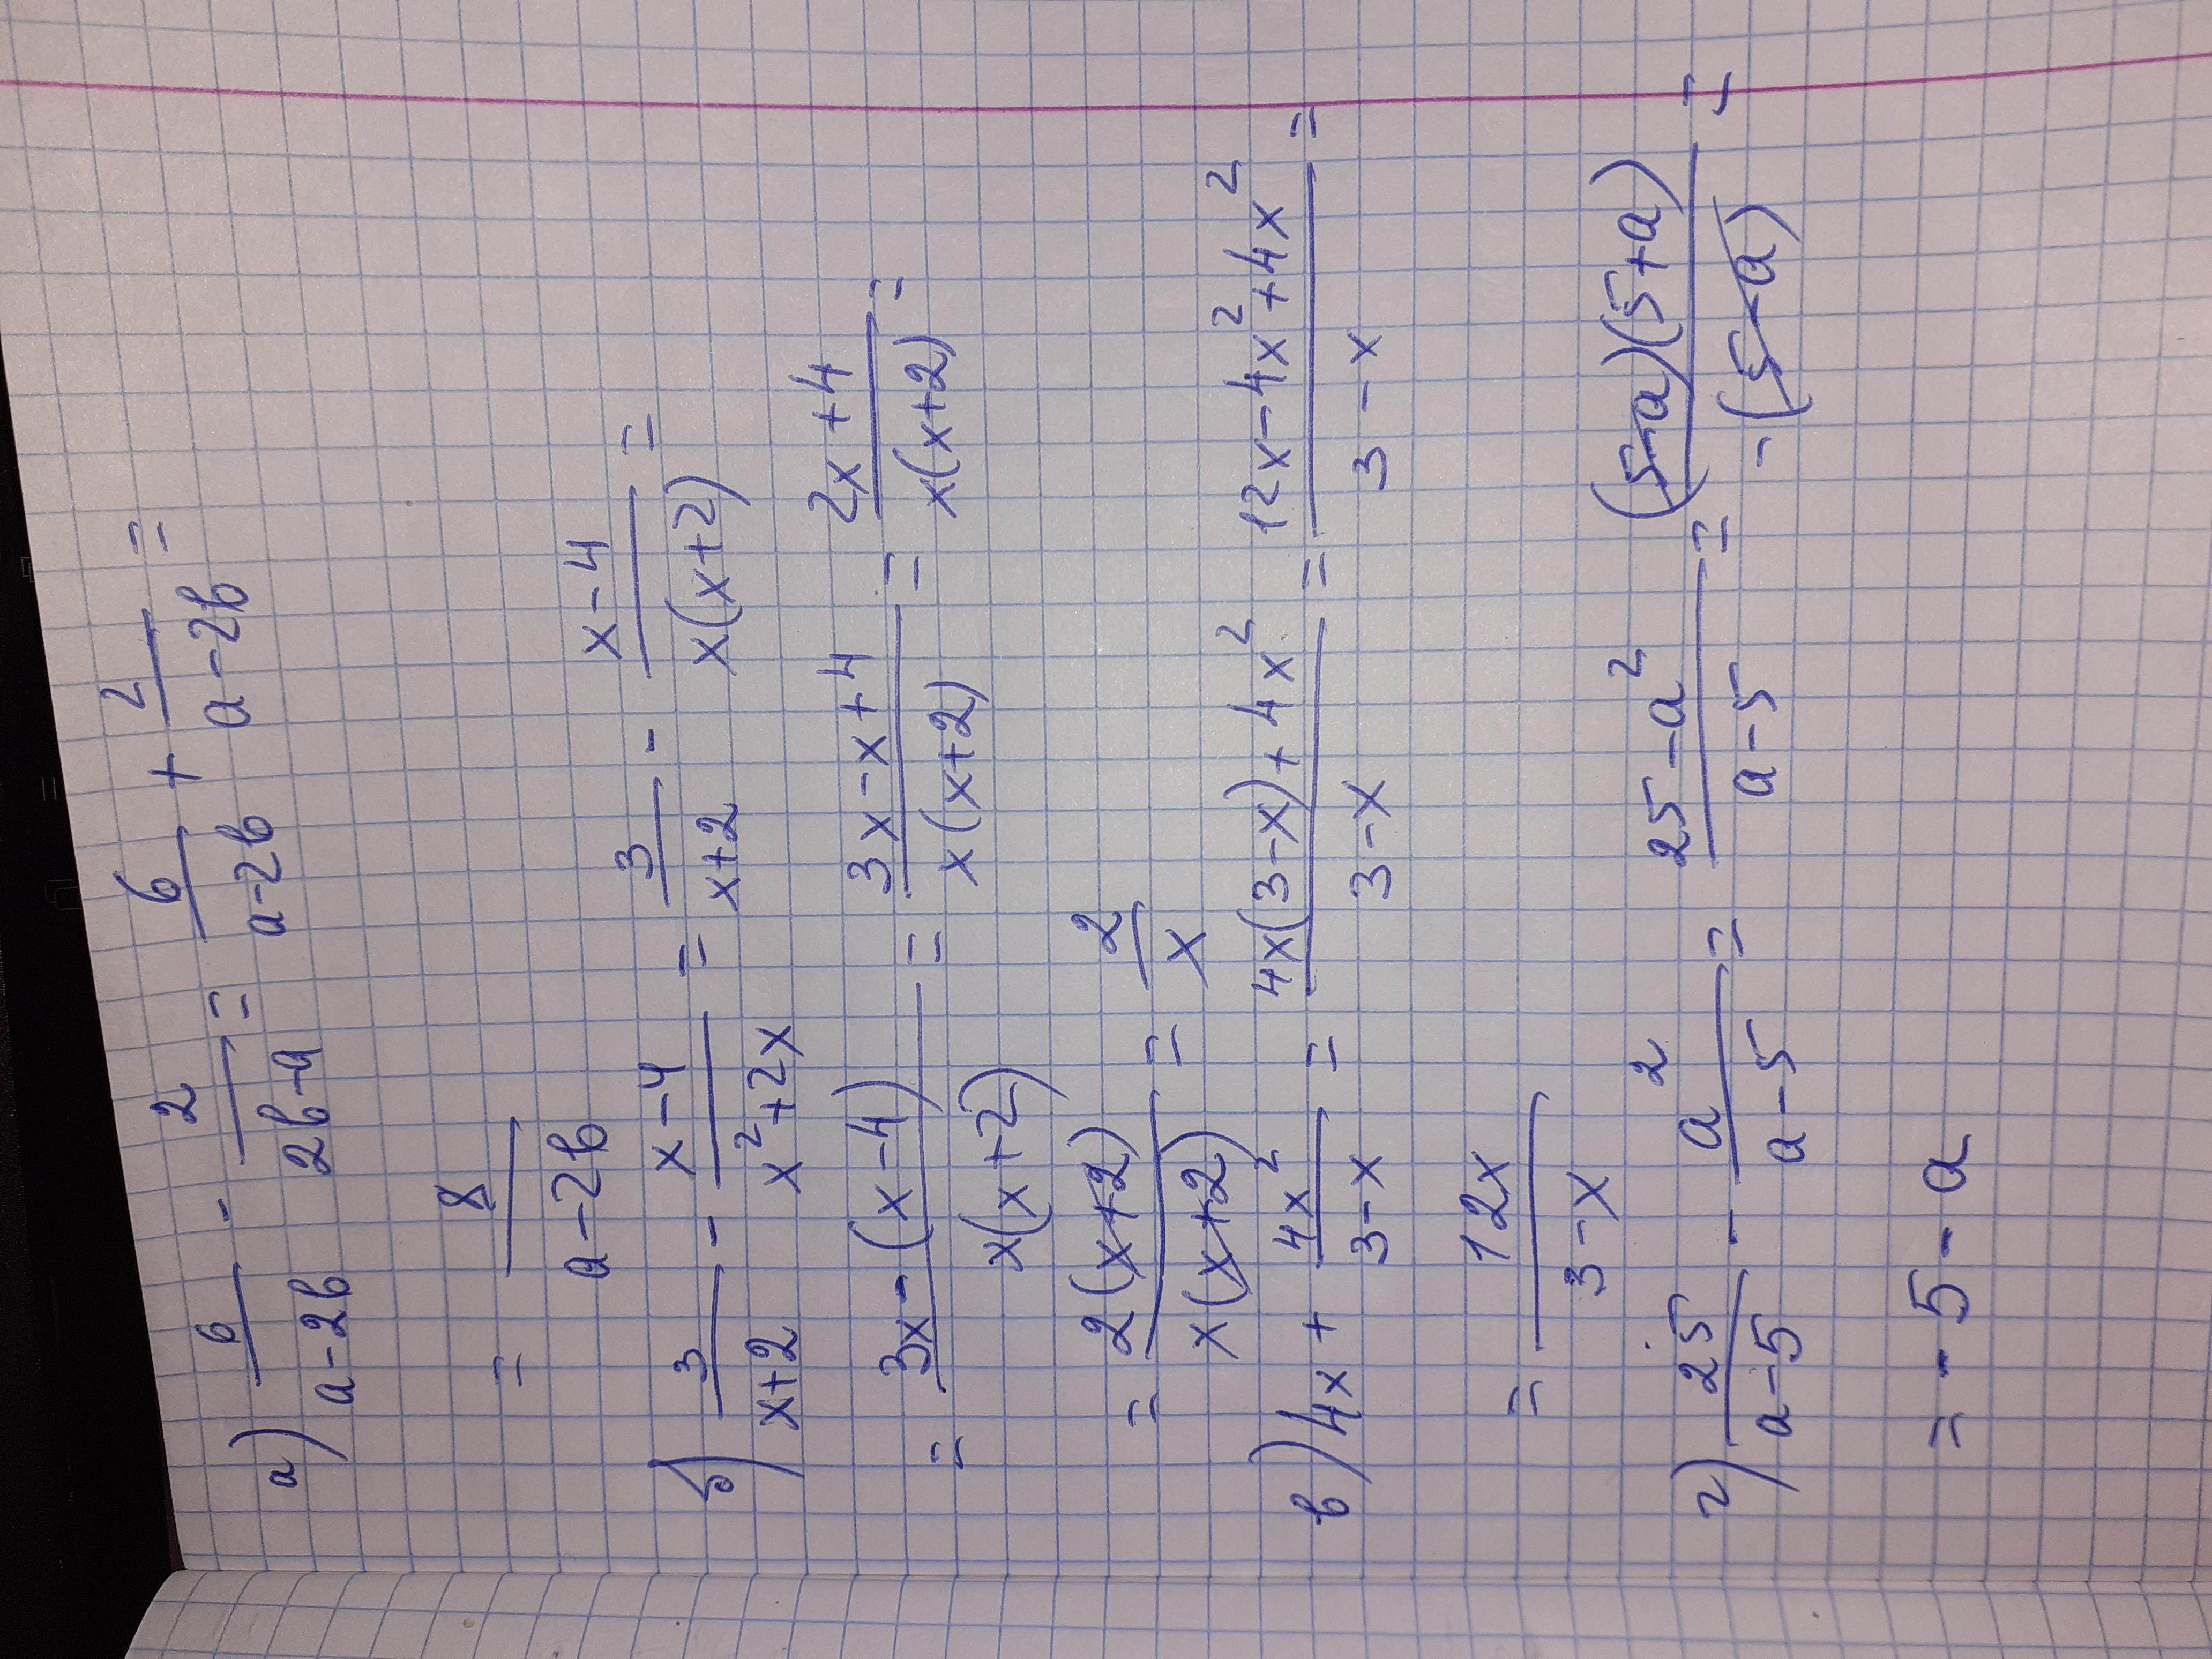 а) 6/(a-2b) - 2/(2b-a) = 6/(a-2b) + 2/(a-2b) =
= 8/(a-2b)
б) 3/(x+2) - (x-4)/(x²+2x) = 3/(x+2) - (x-4)/(x(x+2)) =
= (3x-(x-4))/(x(x+2)) = (3x-x+4)/(x(x+2)) = (2x+4)/(x(x+2)) =
= 2(x+2)/(x(x+2)) = 2/x
в) 4x + 4x²/(3-x) = (4x(3-x)+4x²)/(3-x) = (12x-4x²+4x²)/(3-x) =
= 12x/(3-x)
г) 25/(a-5) - a²/(a-5) = (25-a²)/(a-5) = (5-a)(5+a)/(-(5-a)) =
= -5-a